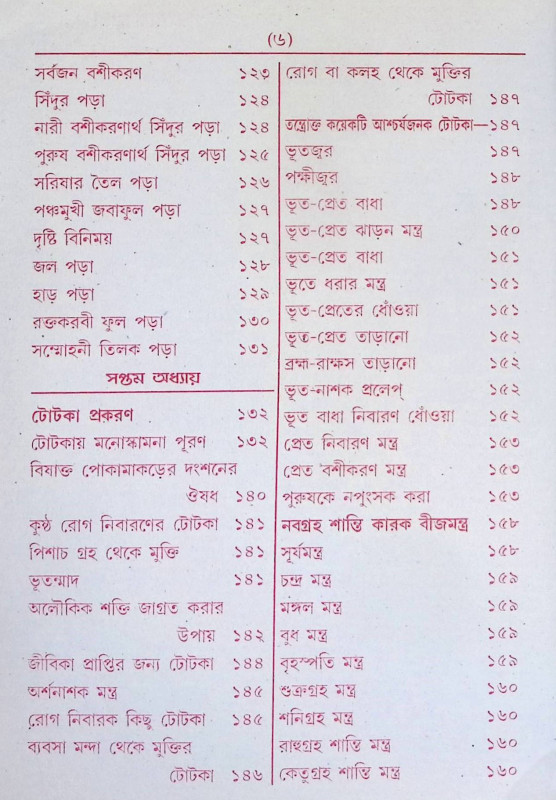 (৬)
সর্বজন বশীকরণ ১২৩
সিঁদুর পড়া ১২৪
নারী বশীকরণার্থ সিঁদুর পড়া ১২৪
পুরুষ বশীকরণার্থ সিঁদুর পড়া ১২৫
সরিষার তৈল পড়া ১২৬
পঞ্চমুখী জবাফুল পড়া ১২৭
দৃষ্টি বিনিময় ১২৭
জল পড়া ১২৮
হাড় পড়া ১২৯
রক্তকরবী ফুল পড়া ১৩০
সম্মোহনী তিলক পড়া ১৩১
সপ্তম অধ্যায়
টোটকা প্রকরণ ১৩২
টোটকায় মনোস্কামনা পূরণ ১৩২
বিষাক্ত পোকামাকড়ের দংশনের
ঔষধ ১৪০
কুষ্ঠ রোগ নিবারণের টোটকা ১৪১
পিশাচ গ্রহ থেকে মুক্তি ১৪১
ভূতন্মাদ ১৪১
অলৌকিক শক্তি জাগ্রত করার
উপায় ১৪২
জীবিকা প্রাপ্তির জন্য টোটকা ১৪৪
অর্শনাশক মন্ত্র ১৪৫
রোগ নিবারক কিছু টোটকা ১৪৫
ব্যবসা মন্দা থেকে মুক্তির
টোটকা ১৪৬
রোগ বা কলহ থেকে মুক্তির
টোটকা ১৪৭
তন্ত্রোক্ত কয়েকটি আশ্চর্যজনক টোটকা—১৪৭
ভূতজ্বর ১৪৭
পক্ষীজ্বর ১৪৮
ভূত-প্রেত বাধা ১৪৮
ভূত-প্রেত ঝাড়ন মন্ত্র ১৫০
ভূত-প্রেত বাধা ১৫১
ভূতে ধরার মন্ত্র ১৫১
ভূত-প্রেতের ধোঁওয়া ১৫১
ভূত-প্রেত তাড়ানো ১৫২
ব্রহ্ম-রাক্ষস তাড়ানো ১৫২
ভূত-নাশক প্রলেপ ১৫২
ভূত বাধা নিবারণ ধোঁওয়া ১৫২
প্রেত নিবারণ মন্ত্র ১৫৩
প্রেত বশীকরণ মন্ত্র ১৫৩
পুরুষকে নপুংসক করা ১৫৩
নবগ্রহ শান্তি কারক বীজমন্ত্র ১৫৮
সূর্যমন্ত্র ১৫৮
চন্দ্র মন্ত্র ১৫৯
মঙ্গল মন্ত্র ১৫৯
বুধ মন্ত্র ১৫৯
বৃহস্পতি মন্ত্র ১৫৯
শুক্রগ্রহ মন্ত্র ১৬০
শনিগ্রহ মন্ত্র ১৬০
রাহুগ্রহ শান্তি মন্ত্র ১৬০
কেতুগ্রহ শান্তি মন্ত্র ১৬০